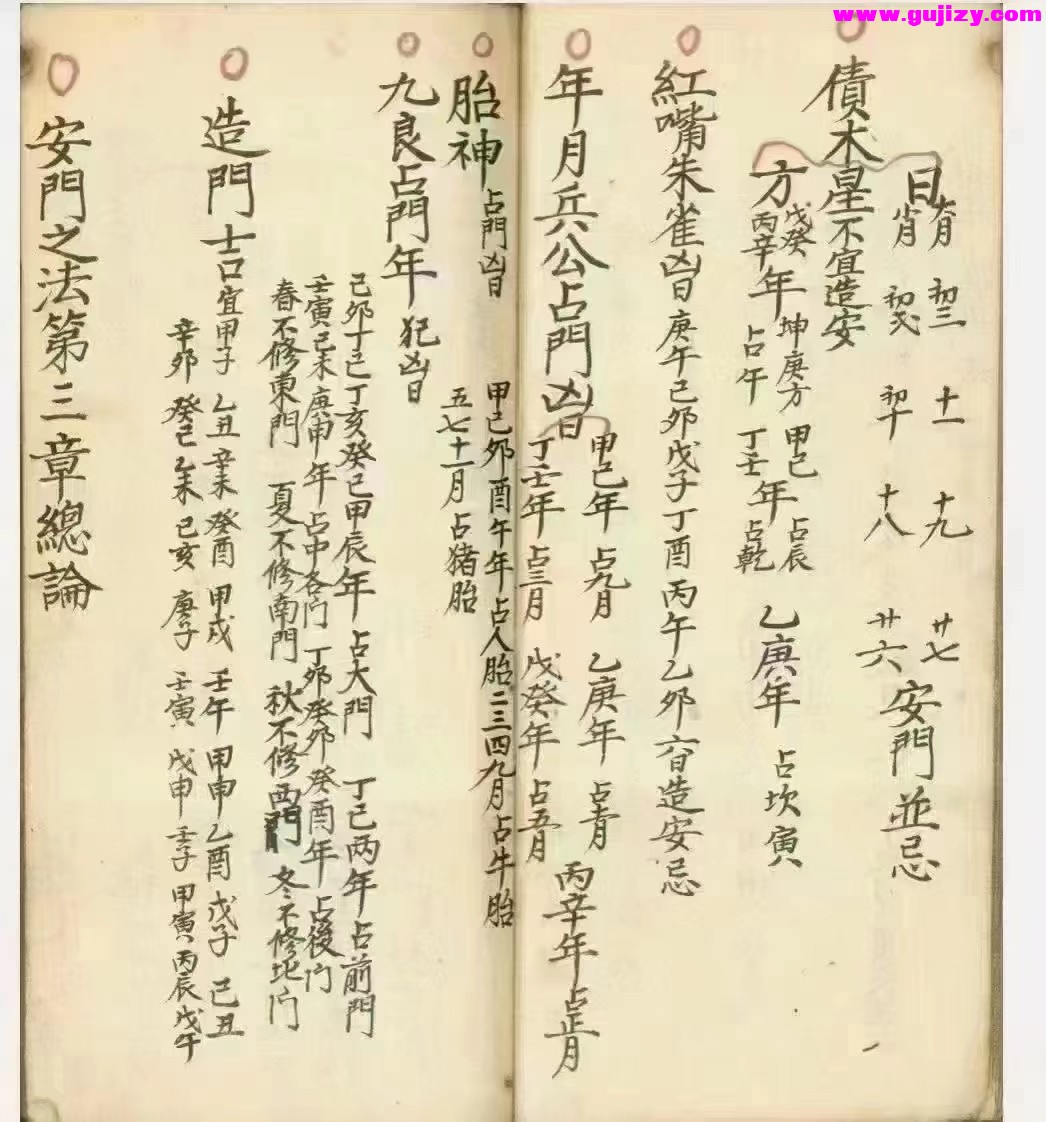 www.gujizy.com
日 有月 初三 十一 十九 廿七
肖月 初弍 初十 十八 廿六 安門並忌
債木星不宜造安
方 戊癸年 坤庚方 甲己年 占辰
丙辛年 占午 丁壬年 占乾 乙庚年 占坎寅
紅嘴朱雀凶日 庚午己卯戊子丁酉丙午乙卯六日造安忌
年月兵公占門凶日 甲己年 占九月 乙庚年 占青月 丙辛年 占正月
丁壬年 占三月 戊癸年 占五月
胎神 占門凶日 甲己卯酉午年占人胎二三四九月占牛胎
五七十一月占猪胎
九良占門年 犯凶日
己卯丁己丁亥癸巳甲辰年 占大門 丁己两年占前門
壬寅己未庚申年占中各门 丁卯癸卯癸酉年占後门
春不修東門 夏不修南門 秋不修西門 冬不修北门
造門吉 宜甲子 乙丑 辛未 癸酉 甲戌 壬午 甲申 乙酉 戊子 己丑
辛卯 癸己 乙未 己亥 庚子 壬寅 戊申 壬子 甲寅 丙辰 戊午
安門之法第三章總論